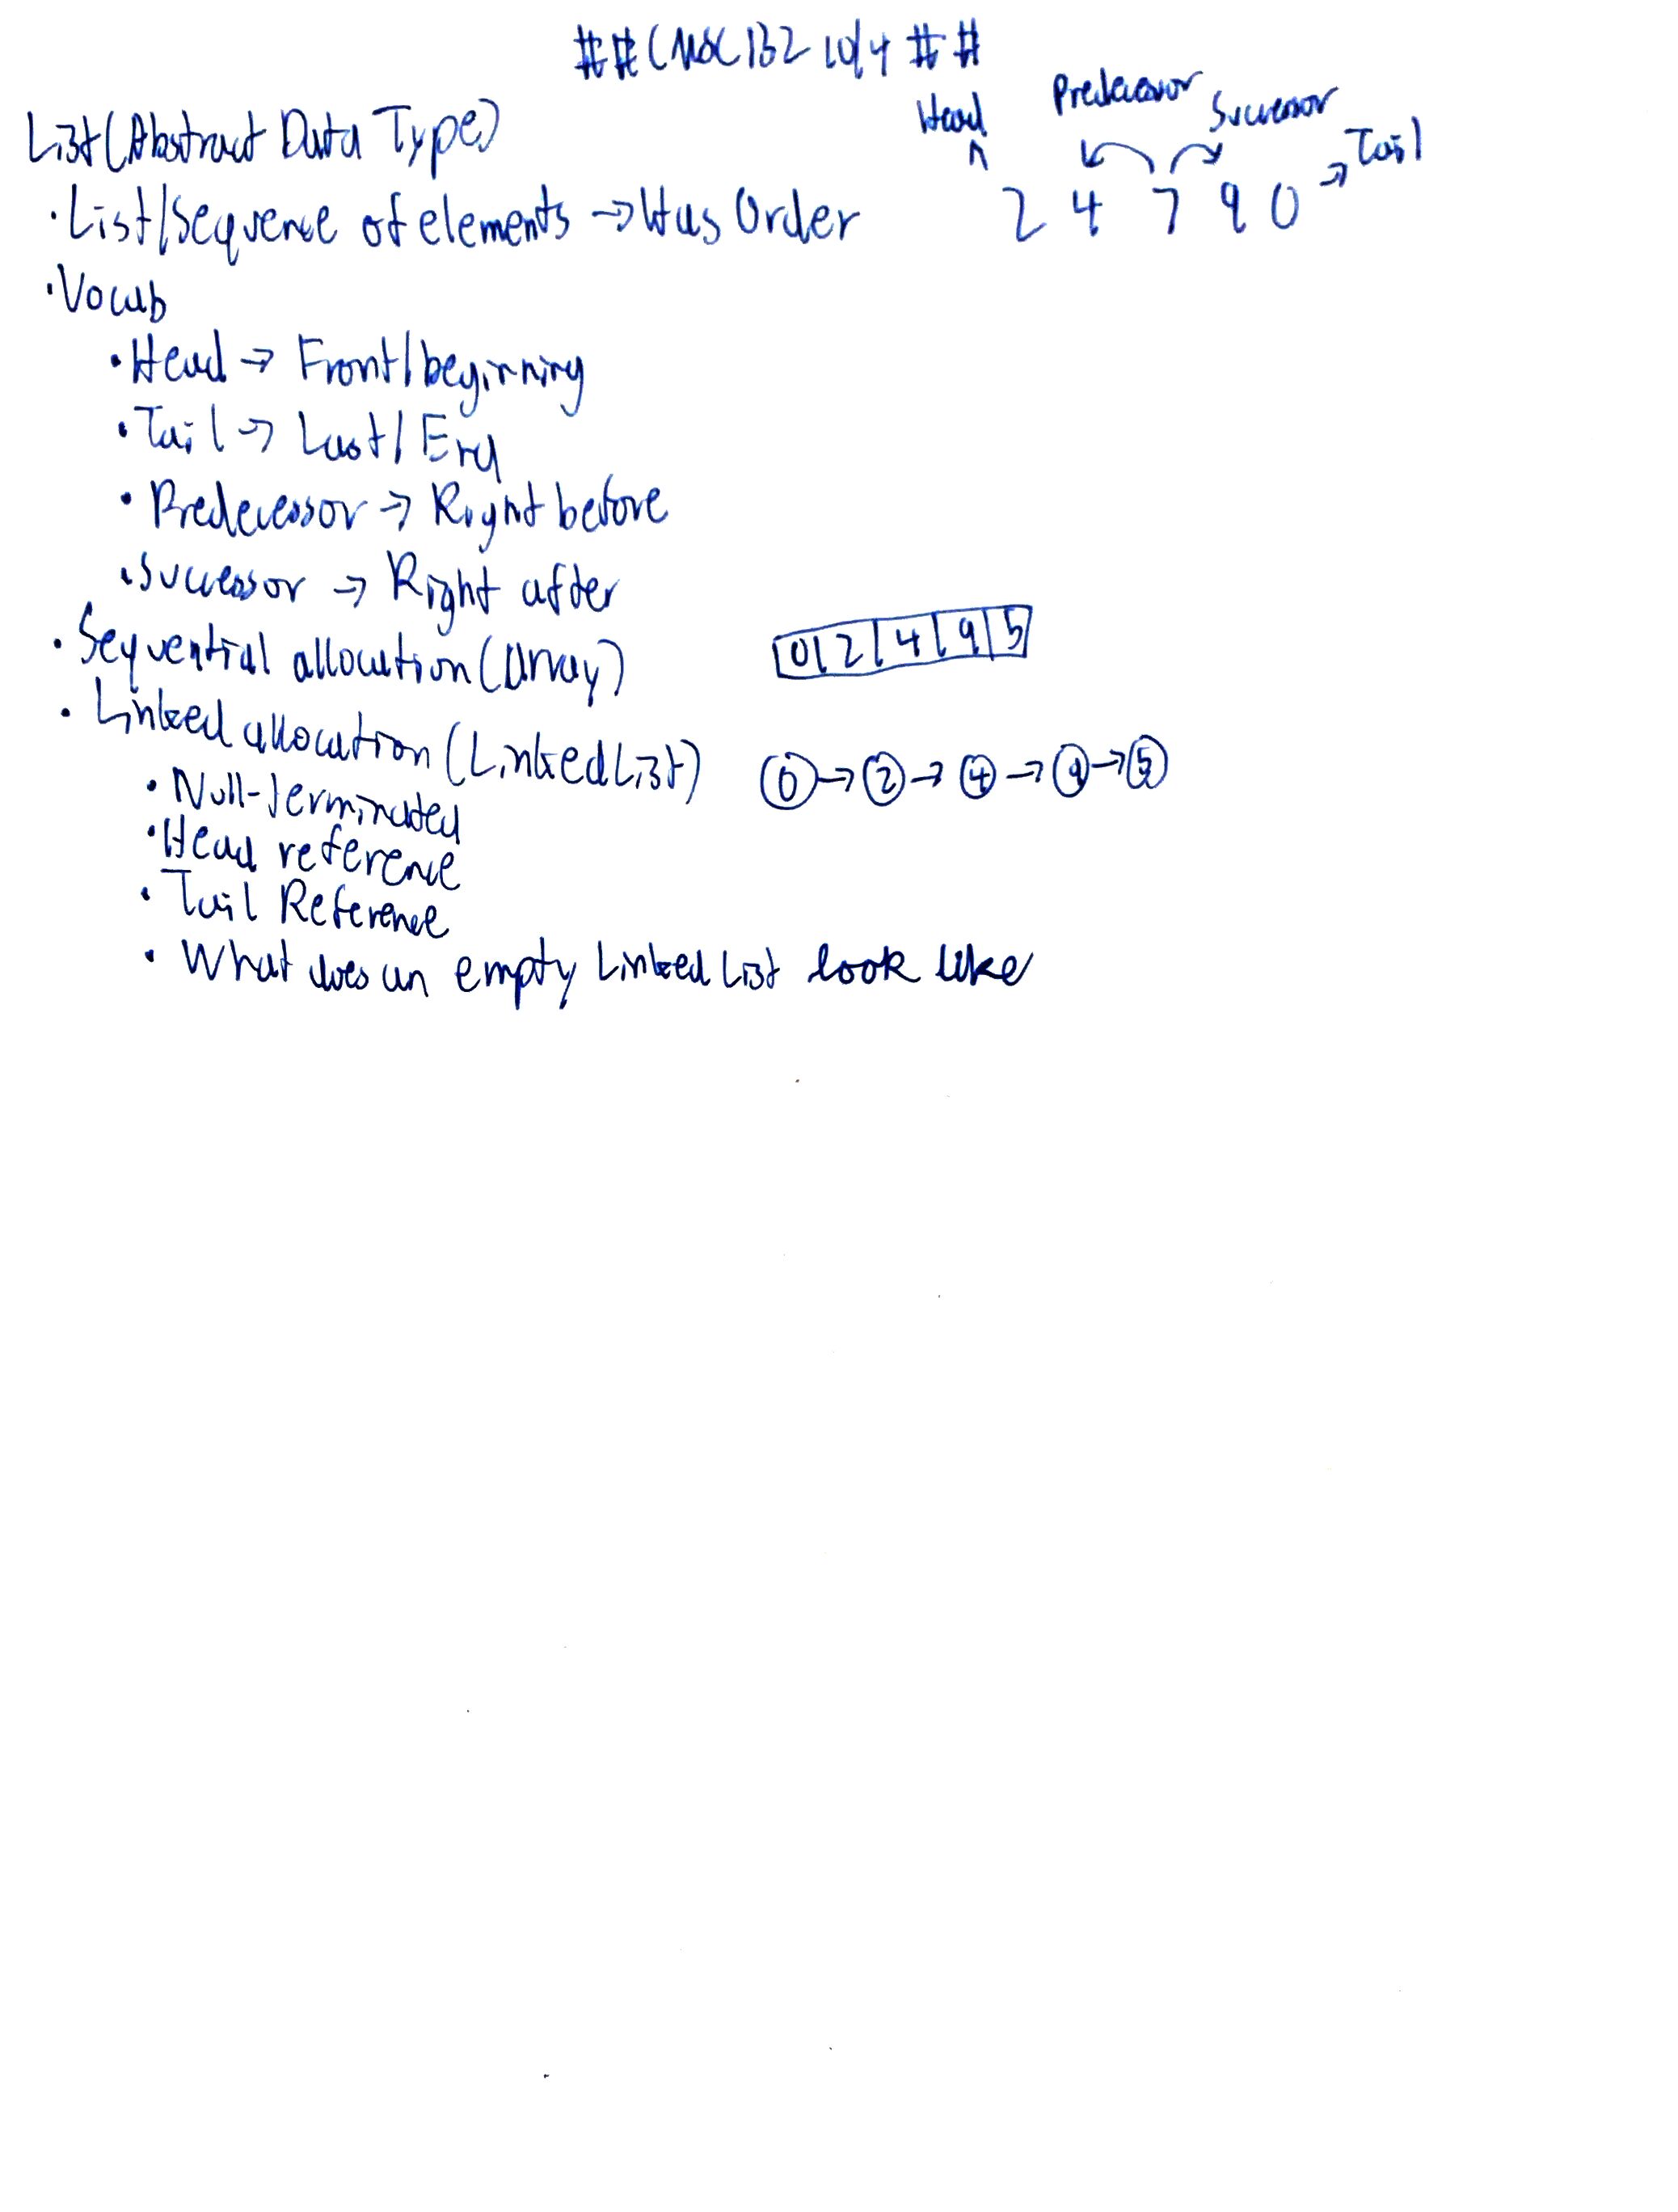 ##CMSC132 10/4##
List(Abstract Data Type)
Head
Predecessor
Successor
Tail
·List/Sequence of elements → Has Order
2 4 7 9 0
·Vocab
·Head → Front/beginning
·Tail → Last/End
·Predecessor → Right before
·Successor → Right after
·Sequential allocation(array)
0 2 4 9 5
·Linked allocation(LinkedList)
0 → 2 → 4 → 9 → 5
·Null-terminated
·Head reference
·Tail Reference
·What does an empty Linked List look like